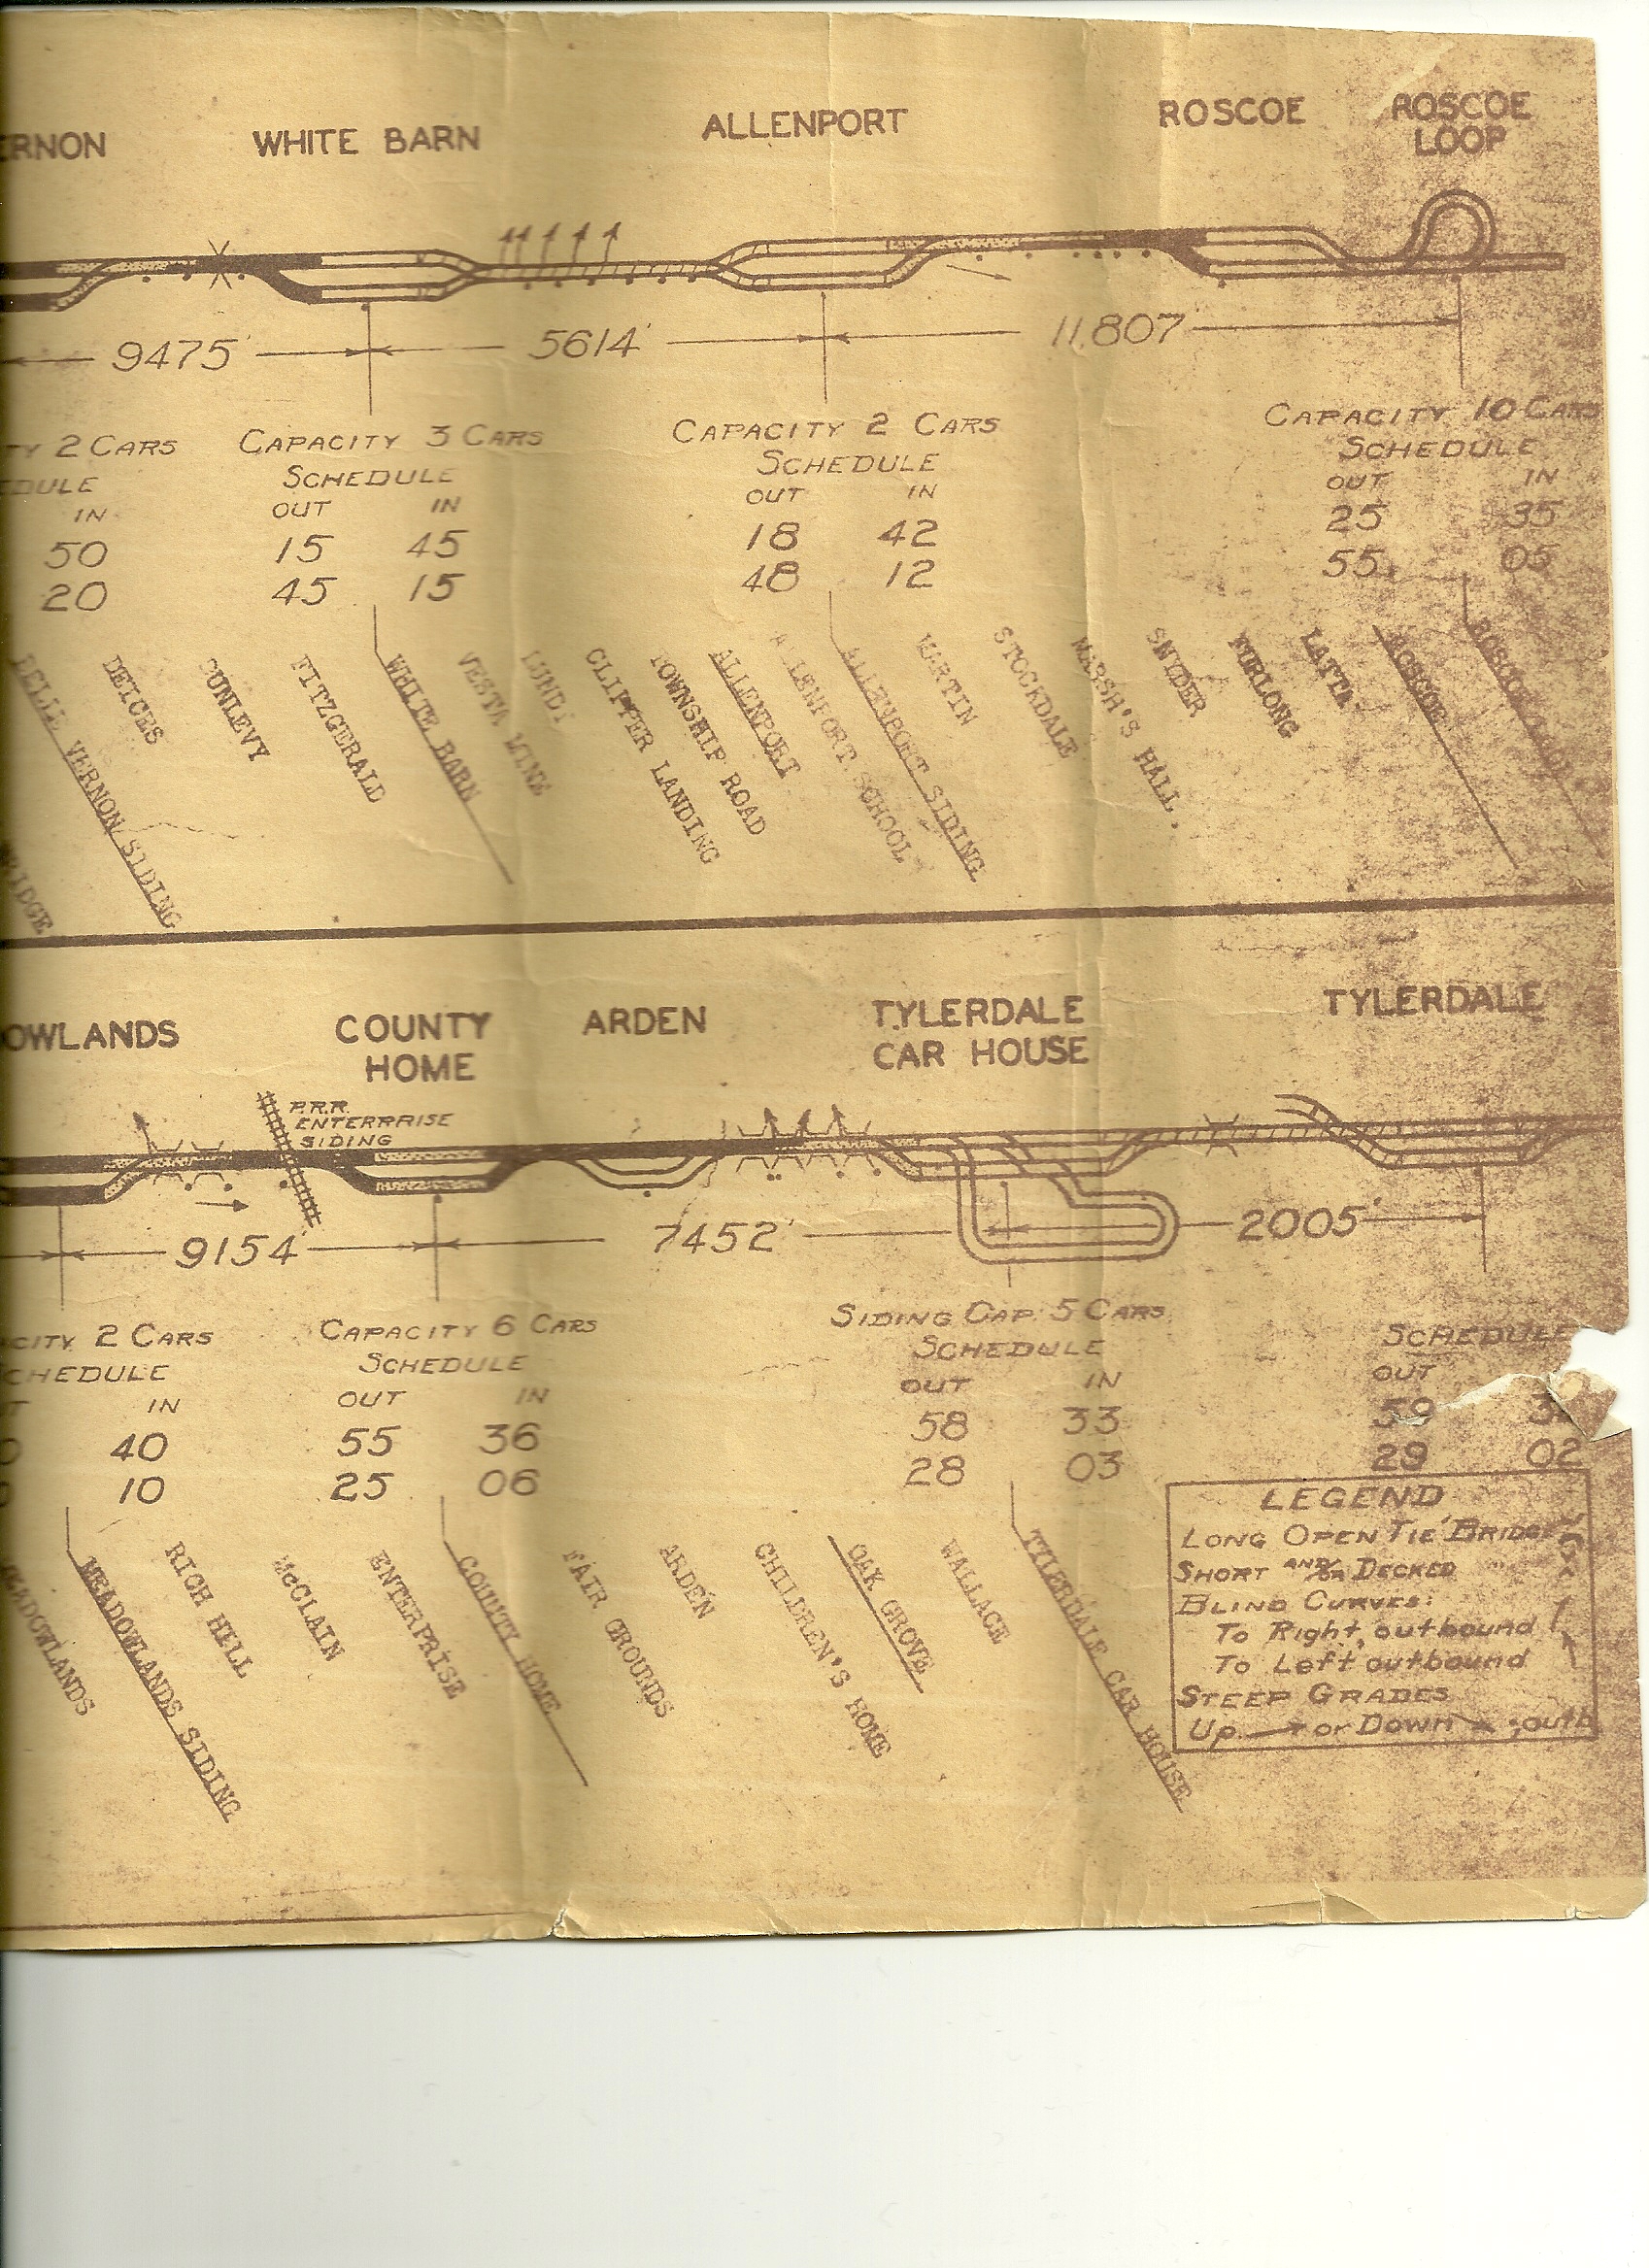 ERNON WHITE BARN ALLENPORT ROSCOE ROSCOE
LOOP
9475' 5614' 11,807'
TY 2 CARS CAPACITY 3 CARS CAPACITY 2 CARS CAPACITY 10 CARS
EDULE SCHEDULE SCHEDULE SCHEDULE
IN OUT IN OUT IN OUT IN
50 15 45 18 42 25 35
20 45 15 48 12 55 05
RIDGE
BELLE VERNON SIDING
DEICES
DUNLEVY
FITZGERALD
WHITE BARN
VESTA MINE
LUNDY
CLIPPER LANDING
TOWNSHIP ROAD
ALLENPORT
ALLENPORT SCHOOL
ALLENPORT SIDING
MARTIN
STOCKDALE
MARSH'S HALL.
SNYDER
FURLONG
LATTA
ROSCOE
ROSCOE LOOP
OWLANDS COUNTY
HOME
ARDEN TYLERDALE
CAR HOUSE
TYLERDALE
P.R.R.
ENTERPRISE
SIDING
9154' 7452' 2005'
CITY 2 CARS CAPACITY 6 CARS SIDING CAP. 5 CARS
CHEDULE SCHEDULE SCHEDULE SCHEDULE
T IN OUT IN OUT IN OUT
0 40 55 36 58 33 59 3
0 10 25 06 28 03 29 02
MEADOWLANDS
MEADOWLANDS SIDING
RICH HILL
McCLAIN
ENTERPRISE
COUNTY HOME
FAIR GROUNDS
ARDEN
CHILDREN'S HOME
OAK GROVE
WALLACE
TYLERDALE CAR HOUSE
LEGEND
LONG OPEN TIE BRIDGE
SHORT AND/OR DECKED
BLIND CURVES:
To Right, outbound
To Left outbound
STEEP GRADES
Up → or Down ↘ ; outb